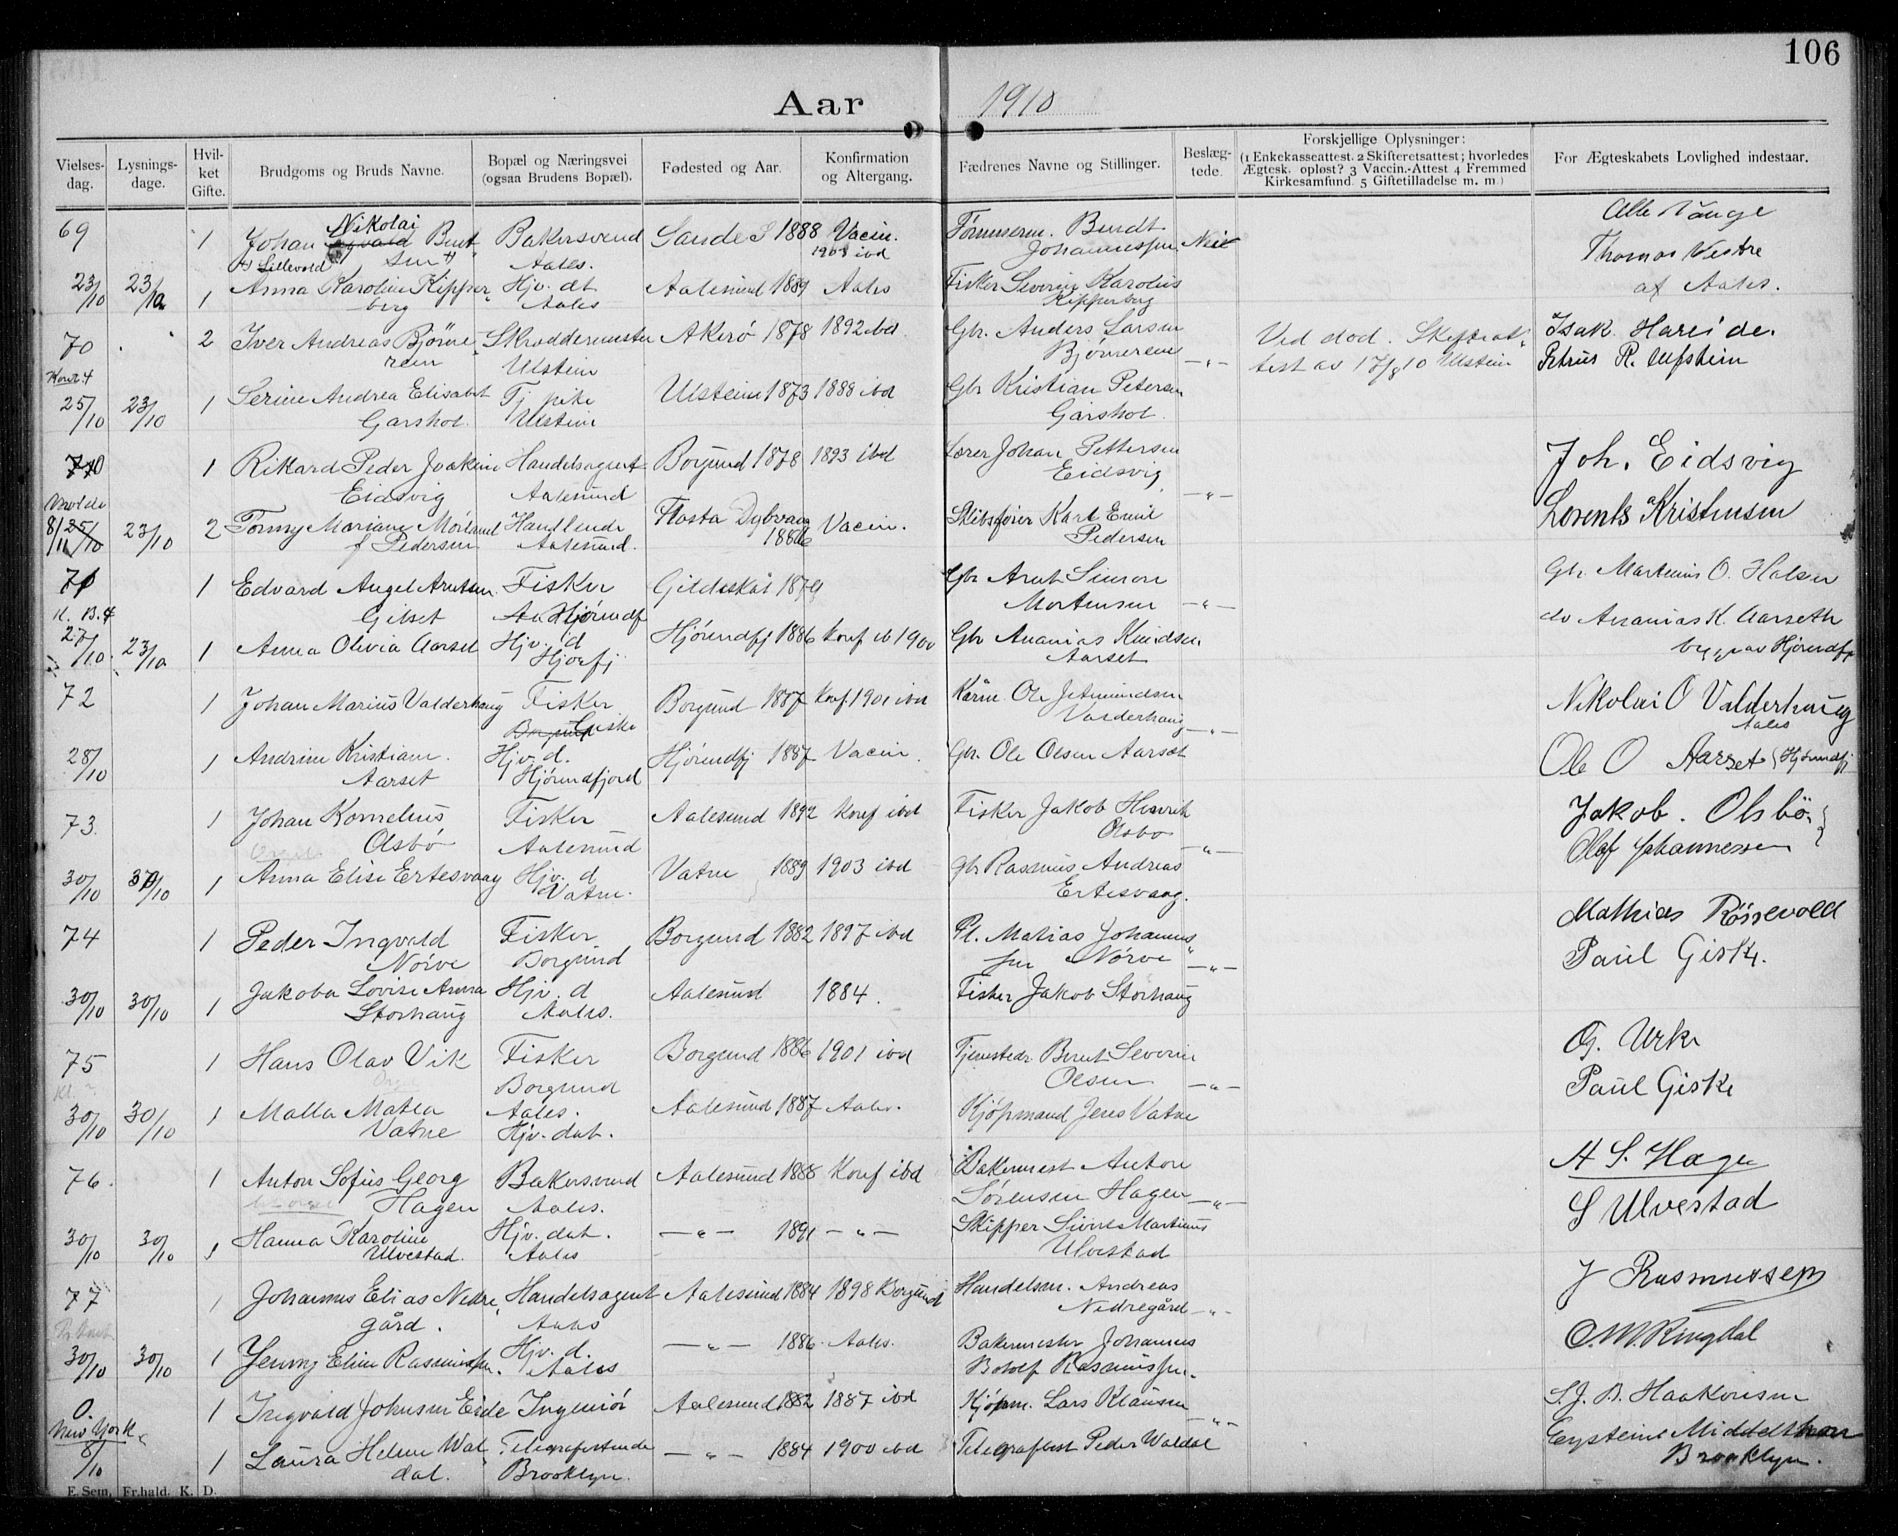 106
Aar 1910
Vielses-dag.
Lysnings-dage.
Hvil-ket Gifte.
Brudgoms og Bruds Navne.
Bopæl og Næringsvei (ogsaa Brudens Bopæl).
Fødested og Aar.
Konfirmation og Altergang.
Fædrenes Navne og Stillinger.
Beslæg-tede.
Forskjellige Oplysninger:
(1 Enkekasseattest. 2 Skifteretsattest; hvorledes
Ægtesk. opløst? 3 Vaccin.-Attest 4 Fremmed
Kirkesamfund 5 Giftetilladelse m. m)
For Ægteskabets Lovlighed indestaar.
69 1 Johan Nikolai Bakersvend Sande S 1888 Vacin. 1903 ibd Berndt Johannessen Nei
Lillevold Aales.
Thomas Vestre
af Aales.
23/10 23/10 1 Anna Karoline Kipperberg Hjv. dt Aales Aalesund 1889 Aales Fisker Severin Karolius Kipperberg
70 2 Iver Andreas Bjørnerem Skræddermester Ulstein Akerø 1878 1892 ibd Gbr. Anders Larsen Bjørnerem —„— Ved død. Skifteattest av 17/8 10 Ulstein
Isak Hareide.
Petrus R. Ulfstein
25/10 23/10 1 Serine Andrea Elisabet Garshol. Tj pike Ulstein Ulstein 1873 1888 ibd Gbr Kristian Petersen Garshol.
1 Rikard Peder Joakim Eidsvig Handelsagent Aalesund Borgund 1878 1893 ibd Lærer Johan Pettersen Eidsvig —„—
Joh. Eidsvig
Molde
8/11 25/10 23/10 2 Handlende Aalesund. Vacin. Karl Emil Pedersen
Lorents Kristensen
71 1 Edvard Angel Arntsen Gilset Fisker Hjørundfj Gildeskål 1879 Gbr Arnt Simon Mortensen —„—
Gbr. Martinus O. Halsen
27/10 23/10 1 Anna Olivia Aarset Hjv. d Hjørfj Hjørundfj 1886 Konf ib 1900 Gbr Ananias Knudsen Aarset
do Ananias K. Aarseth
av Hjørundfj
72 1 Johan Marius Valderhaug Fisker Borgund Giske Borgund 1887 Konf. 1901 ibd Ole Jetmundsen Valderhaug —„—
Nikolai O Valderhaug
Aales
28/10 1 Andrine Kristiane Aarset Hjv. d. Hjørundfjord Hjørundfj 1887 Vacin. Gbr. Ole Olsen Aarset
Ole O Aarset Hjørundfj
73. 1 Johan Kornelius Olsbø Fisker Aalesund Aalesund 1892 Konf ibd Fisker Jakob Henrik Olsbø —„—
Jakob. Olsbø
Olaf Johannessen
30/10 30/10 1 Anna Elise Ertesvaag Hjv. d Vatne. Vatne 1889 1903 ibd Gbr Rasmus Andreas Ertesvaag.
74 1 Peder Ingvald Nørve Fisker Borgund Borgund 1882 1897 ibd Pl. Matias Johannessen Nørve —„—
Mathias Røssevold
Paul Giske.
30/10 30/10 1 Jakoba Lovise Anna Storhaug Hjv. d Aales. Aalesund 1884. Fisker Jakob Storhaug
75 1 Hans Olav Vik Fisker Borgund Borgund 1886 1901 ibd Bernt Severin Olsen —„—
O. Urke
Paul Giske
30/10 30/10 1 Malla Matea Vatne Aales. Hjv. dat. Aalesund 1887 Aales. Kjøpmand Jens Vatne
76. 1 Anton Sofus Georg Hagen Bakersvend Aales. Aalesund 1888 Konf ibd Bakermest Anton Sørensen Hagen —„—
A S. Hagen
S Ulvestad
30/10 30/10 1 Hanna Karoline Ulvestad. Hjv. dat. Aales —„— 1891 —„— Skipper Sivert Martinus Ulvestad
77 1 Johannes Elias Nedregård. Handelsagent Aales Aalesund 1884 1898 Borgund Handelsm. Andreas Nedregård —„—
J Rasmussen
30/10 30/10 1 Jenny Eline Rasmussen. Hjv. d. Aales —„— 1886. Aales. Bakermester Johannes Botolf Rasmussen.
O. M. Ringdal
0. 1 Ingvald Johnsen Eide Ingeniør Aalesund 1882 1887 ibd Kjøpm. Lars Klausen —„—
S. J. B. Haakonsen
New York
8/10 1 Laura Helene Waldal. Telegrafistinde Brooklyn. —„— 1884 1900 ibd Telegrafbest Peder Waldal
Eystein Middelthon
Brooklyn.
F. Sem, Fr.hald. K. D.